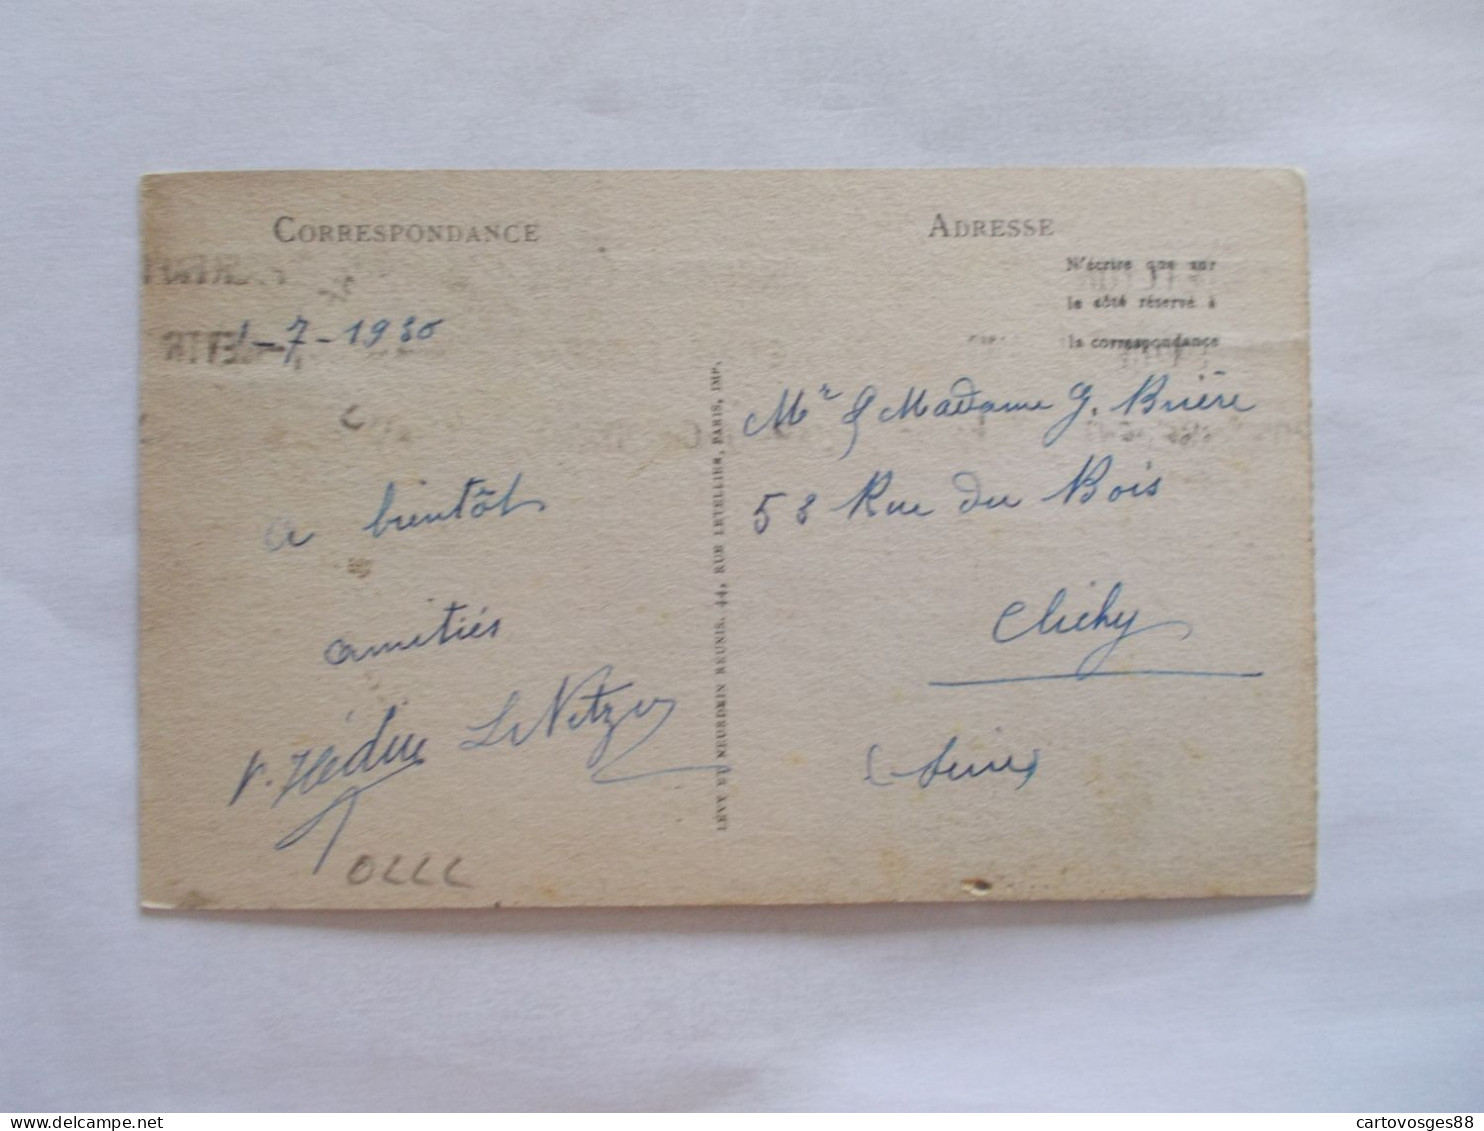 CORRESPONDANCE
1-7-1930
a bientôt
amitiés
LEVY ET NEURDEIN REUNIS. 44, RUE LETELLIER, PARIS, IMP.
ADRESSE
N'écrire que sur
le côté réservé à
la correspondance
Mr & Madame G. Brière
58 Rue du Bois
Clichy
(Seine)
cartovosges88